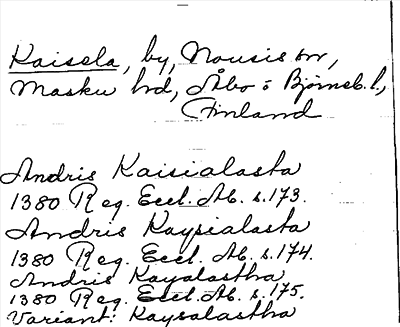 Kaisela, by, Nousis sn,
Masku hd, Åbo o Björneb. l.,
Finland
Andris Kaisialasta
1380 Reg. Eccl. Ab. s. 173.
Andris Kaysialasta
1380 Reg. Eccl. Ab. s. 174.
Andris Kayalastha
1380 Reg. Eccl. Ab. s. 175.
Variant: Kaysalastha